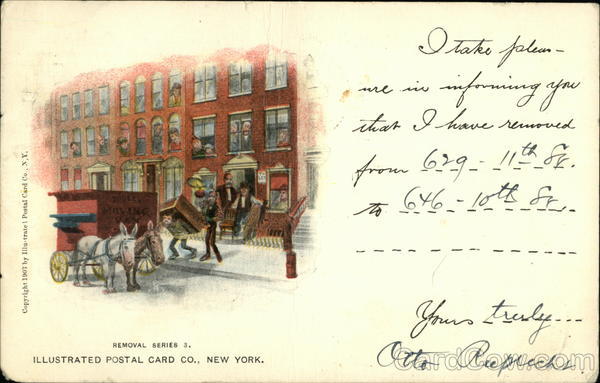 I take pleas-
ure in informing you
that I have removed
from 629 - 11th St.
to 646 - 10th St.
Yours truly
Otto
Copyright 1907 by Illustrated Postal Card Co., N.Y.
REMOVAL SERIES 3.
ILLUSTRATED POSTAL CARD CO., NEW YORK.
CardCow.com